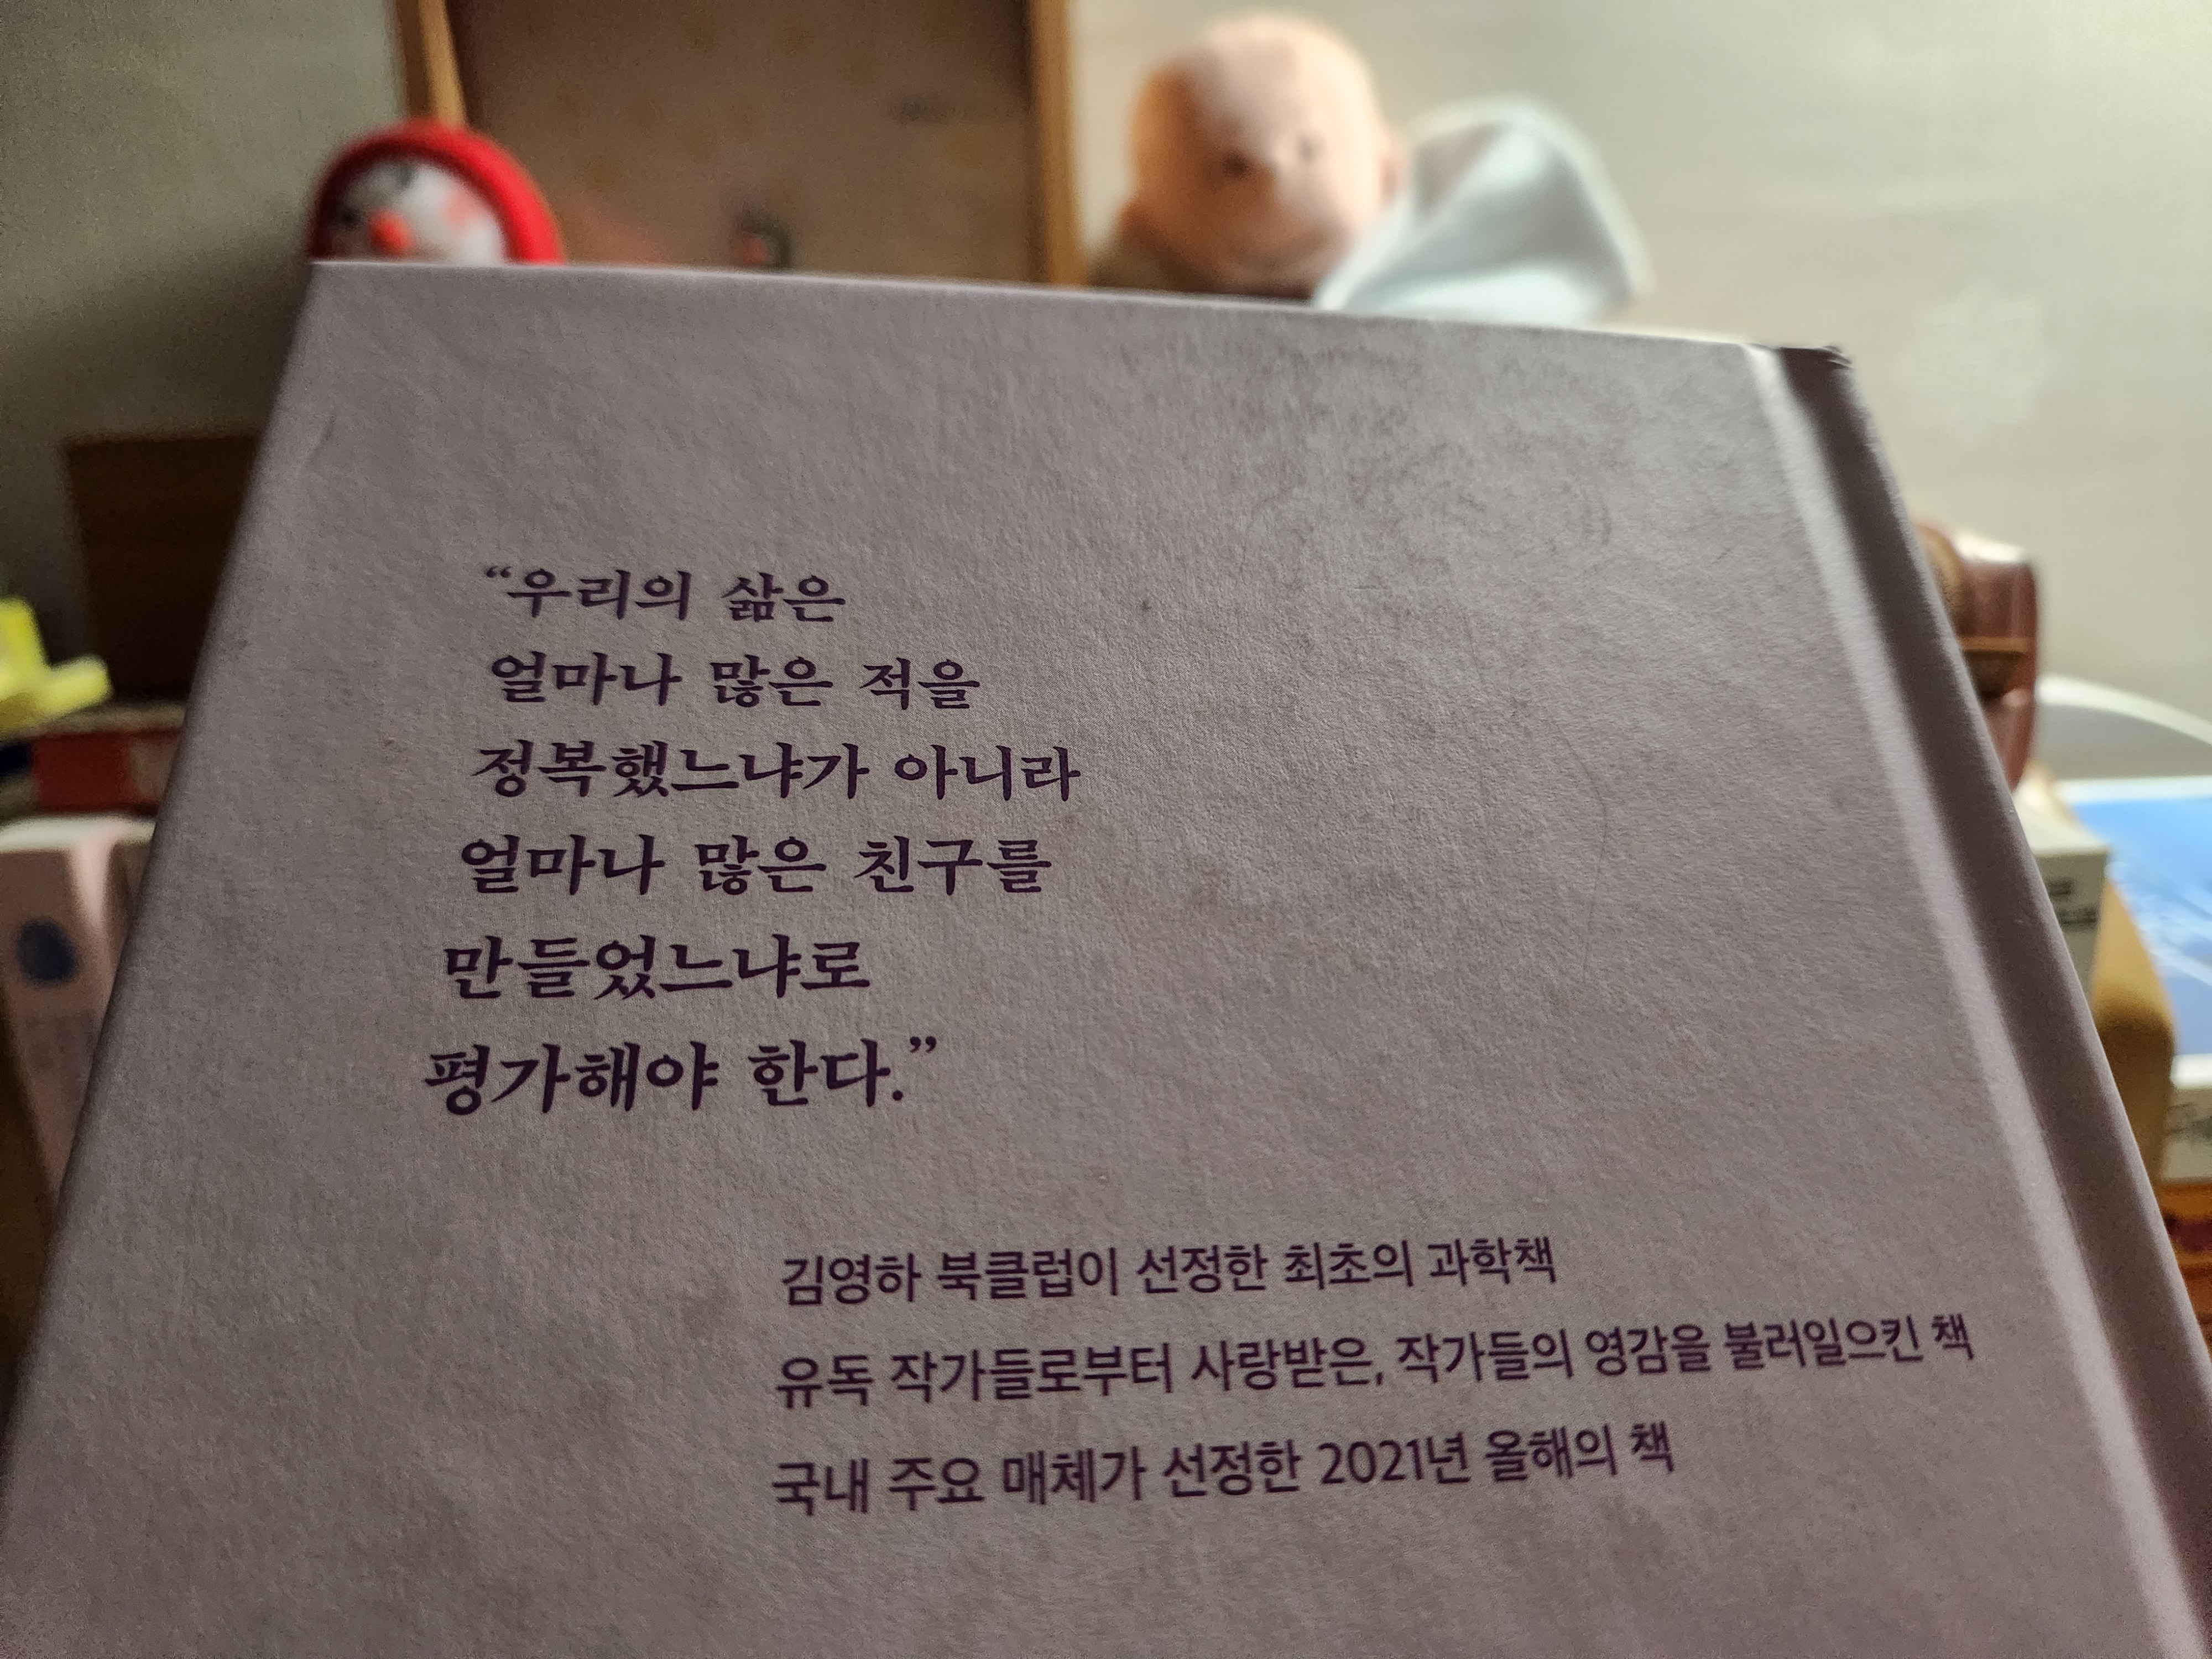 “우리의 삶은
얼마나 많은 적을
정복했느냐가 아니라
얼마나 많은 친구를
만들었느냐로
평가해야 한다.”
김영하 북클럽이 선정한 최초의 과학책
유독 작가들로부터 사랑받은, 작가들의 영감을 불러일으킨 책
국내 주요 매체가 선정한 2021년 올해의 책